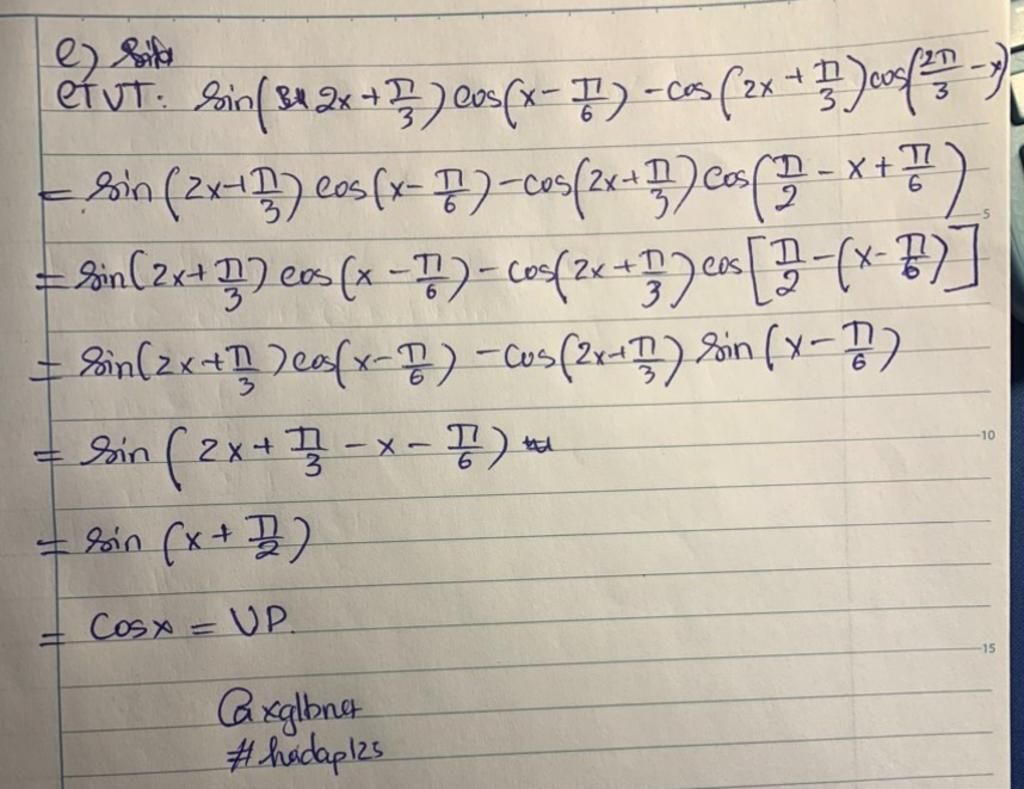 e)
CTVT: Sin(2x + π/3) cos(x - π/6) - cos(2x + π/3) cos(2π/3 - x)
= Sin(2x + π/3) cos(x - π/6) - cos(2x + π/3) cos(π/2 - x + π/6)
= Sin(2x + π/3) cos(x - π/6) - cos(2x + π/3) cos[π/2 - (x - π/6)]
= Sin(2x + π/3) cos(x - π/6) - cos(2x + π/3) Sin(x - π/6)
= Sin(2x + π/3 - x - π/6)
= Sin(x + π/2)
= Cosx = VP.
@xglbner
#hodap125
5
10
15